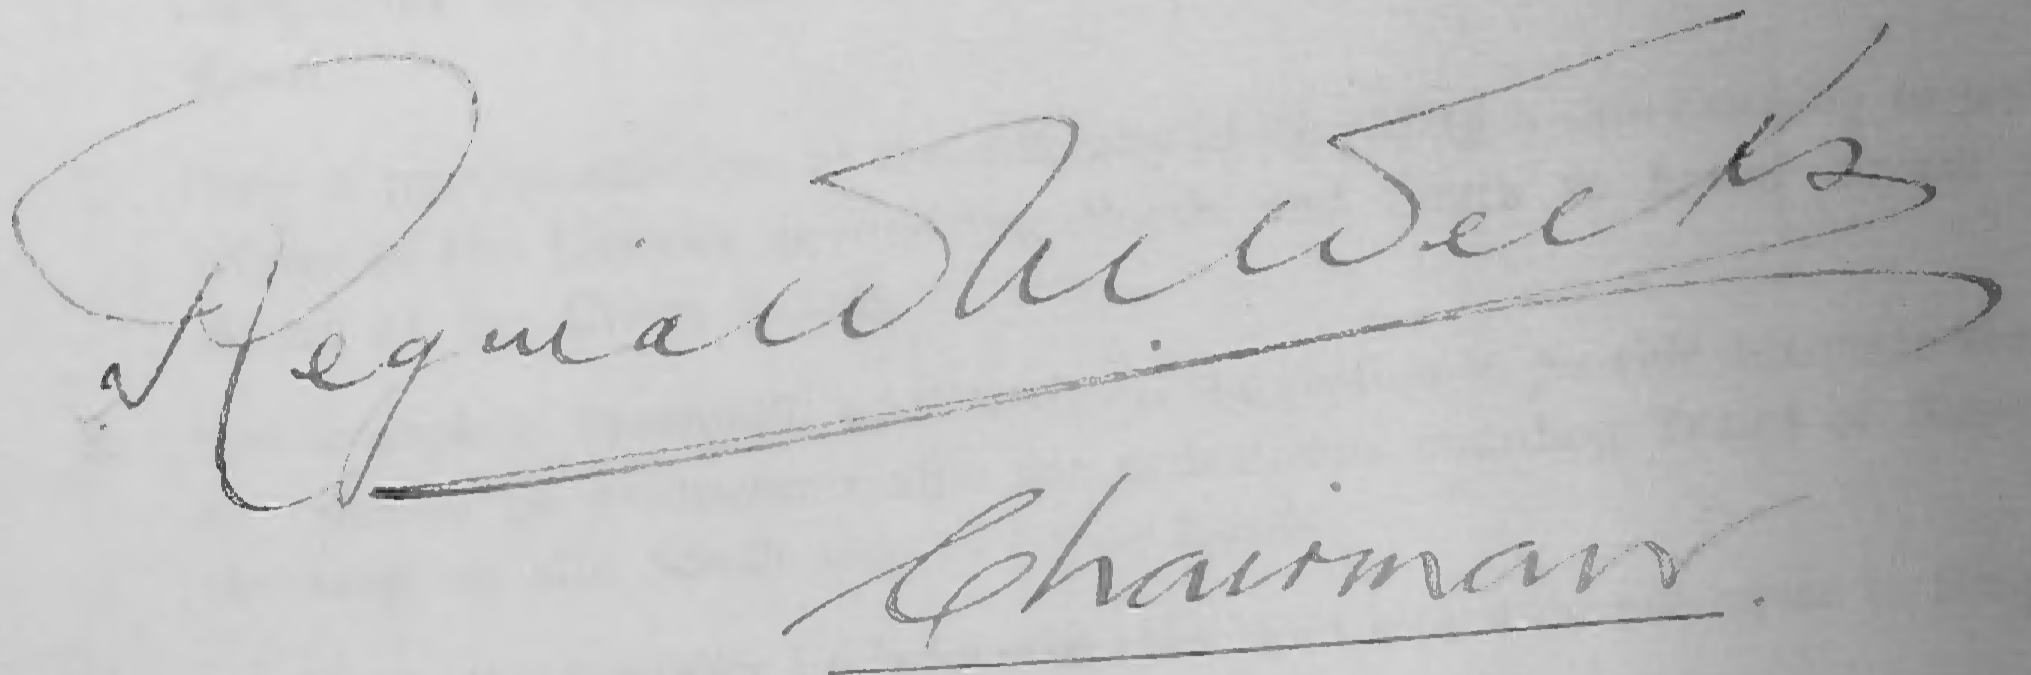 Reginald Weeks
Chairman.